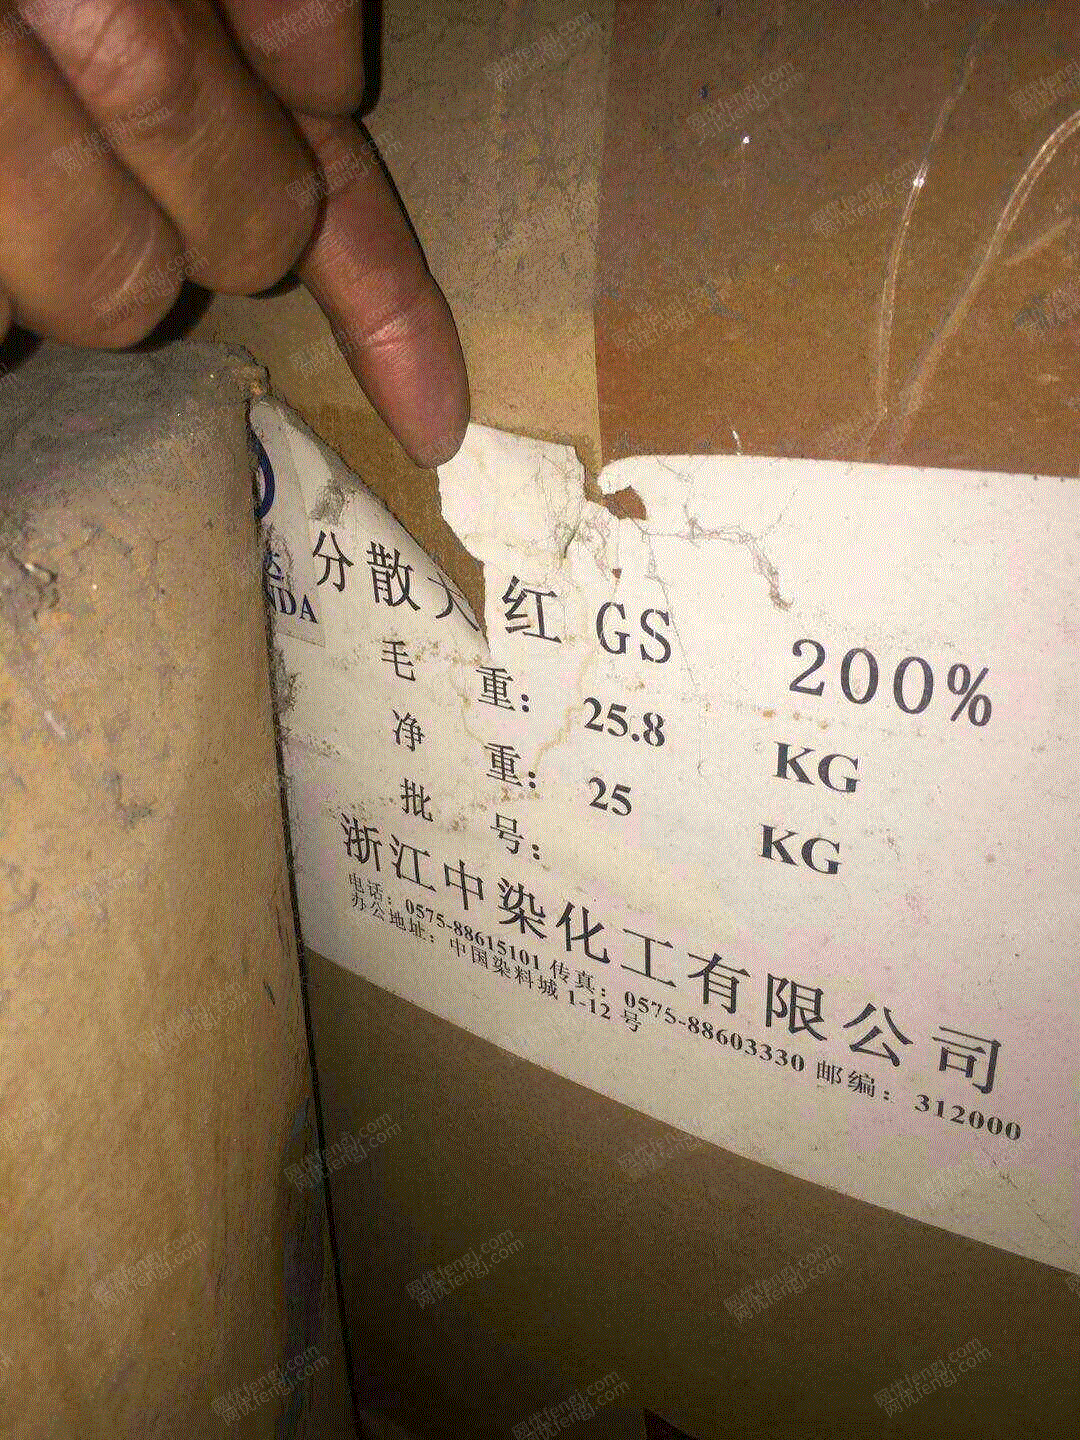 分散大红 GS 200%
毛 重： 25.8 KG
净 重： 25 KG
批 号：
浙江中染化工有限公司
电话：0575-88615101 传真：0575-88603330 邮编：312000
办公地址：中国染料城 1-12 号
NDA